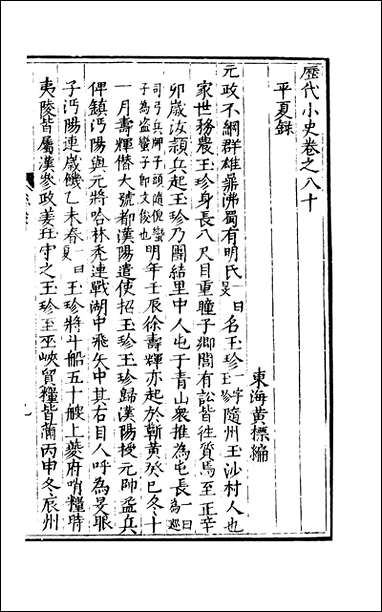 歷代小史卷之八十
平夏錄
東海黃標編
元政不綱群雄鼎沸蜀有明氏一曰旻名玉珍一字玉珍隨州玉沙村人也
家世務農玉珍身長八尺目重瞳子鄉閭有訟皆往質焉至正辛
卯歲汝頴兵起玉珍乃團結里中人屯于青山衆推為屯長一曰為廵
司弓兵牌子頭隨倪蠻子為盜蠻子即文俊也明年壬辰徐壽輝亦起於蘄黃癸巳冬十
一月壽輝僣大號都漢陽遣使招玉珍玉珍歸漢陽授元帥益兵
俾鎮沔陽與元將哈林禿連戰湖中飛矢中其右目人呼為旻眼
子沔陽連歲饑乙未春一曰夏玉珍將斗船五十艘上夔府哨糧時
夷陵皆屬漢參政姜珏守之玉珍至巫峽貿糧皆滿丙申冬辰州